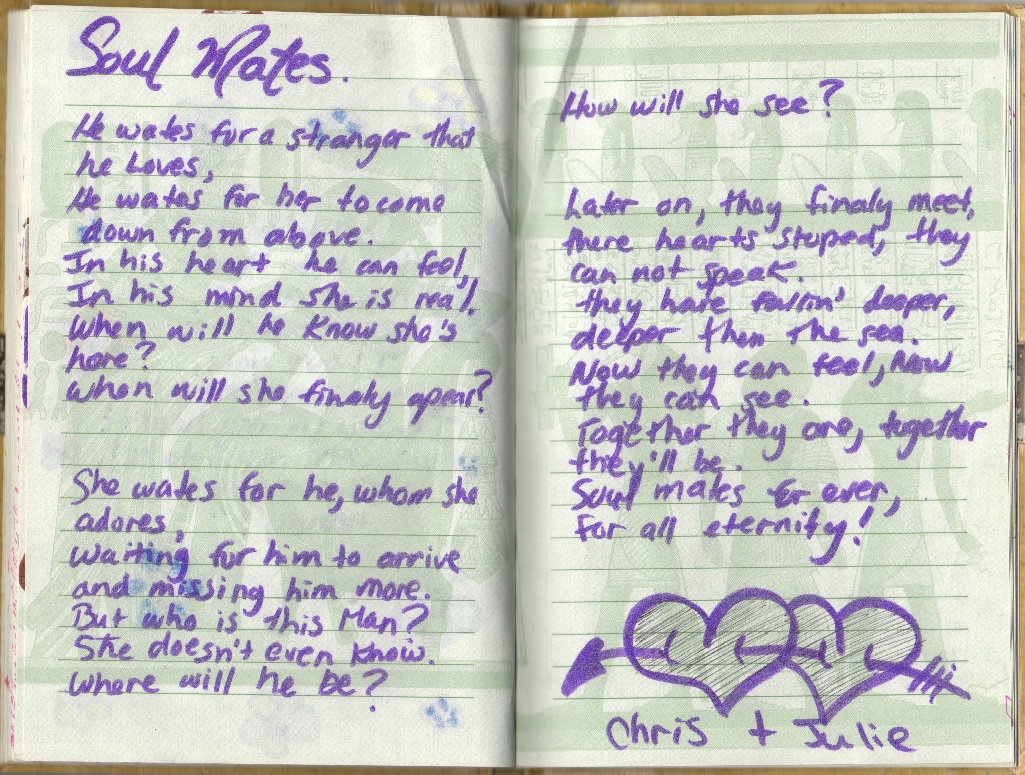 Soul Mates.
He wates for a stranger that
he Loves,
He wates for her to come
down from above.
In his heart he can feel,
In his mind she is real.
When will he Know she's
here?
When will she finaly apear?
She wates for he, whom she
adores,
Waiting for him to arrive
and missing him more.
But who is this Man?
She doesn't even Know.
Where will he be?
How will she see?
Later on, they finaly meet,
there hearts stoped, they
can not speak.
they have fallin' deeper,
deeper then the sea.
Now they can feel, Now
they can see.
Together they are, together
they'll be.
Soul mates for ever,
for all eternity!
Chris + Julie